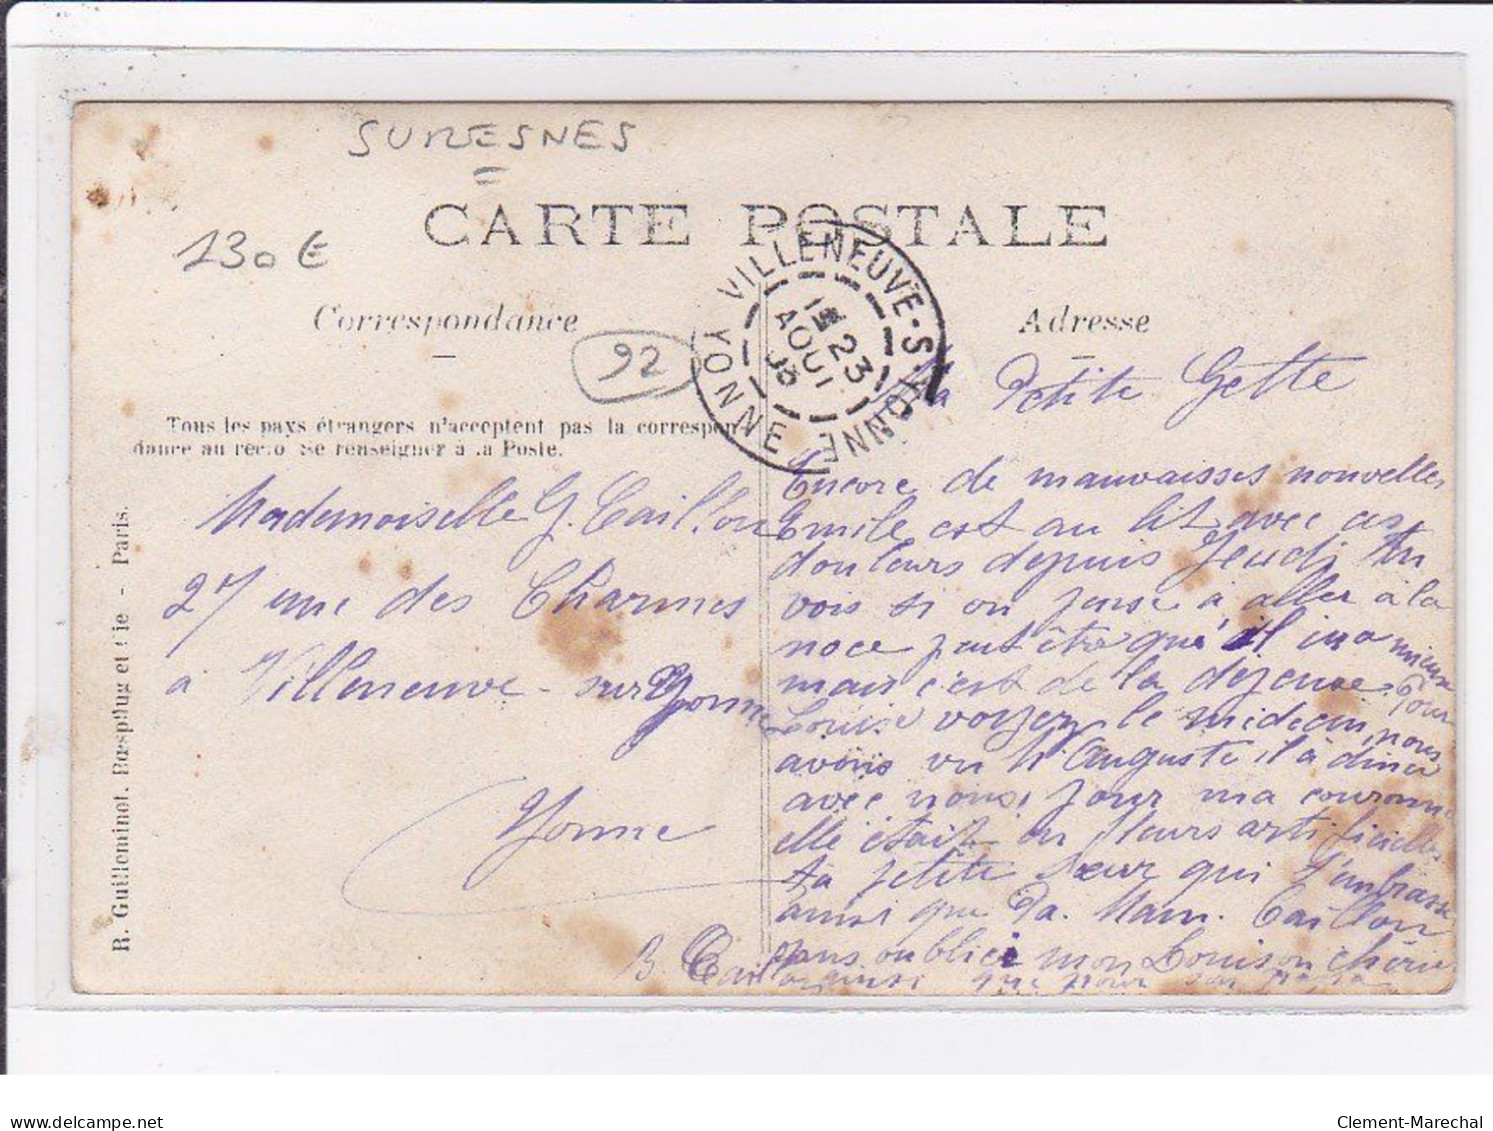 SURESNES
CARTE POSTALE
130€
Correspondance
Adresse
92
VILLENEUVE-S-YONNE
YONNE
1E 23
AOUT
Tous les pays étrangers n'acceptent pas la correspon-
dance au recto Se renseigner à la Poste.
R. Guilleminot, Bœspflug et Cie - Paris.
Mademoiselle G. Taillon
27 rue des Charmes
à Villeneuve-sur Yonne
Yonne
Ma Petite Gette
Encore de mauvaisses nouvelles
Emile est au lit avec ces
douleurs depuis Jeudi tu
vois si on pense à aller à la
noce peut être qu'il ira mieux
mais c'est de la dépense. Pour
Louise voyez le médecin, nous
avons vu H. Auguste il à diner
avec nous, pour ma couronne
elle était en fleurs artificielles
ta petite sœur qui t'embrasse
ainsi que Pa. Mam. Taillon
sans oublier mon Louison chérie
B. Taillon ainsi que pour